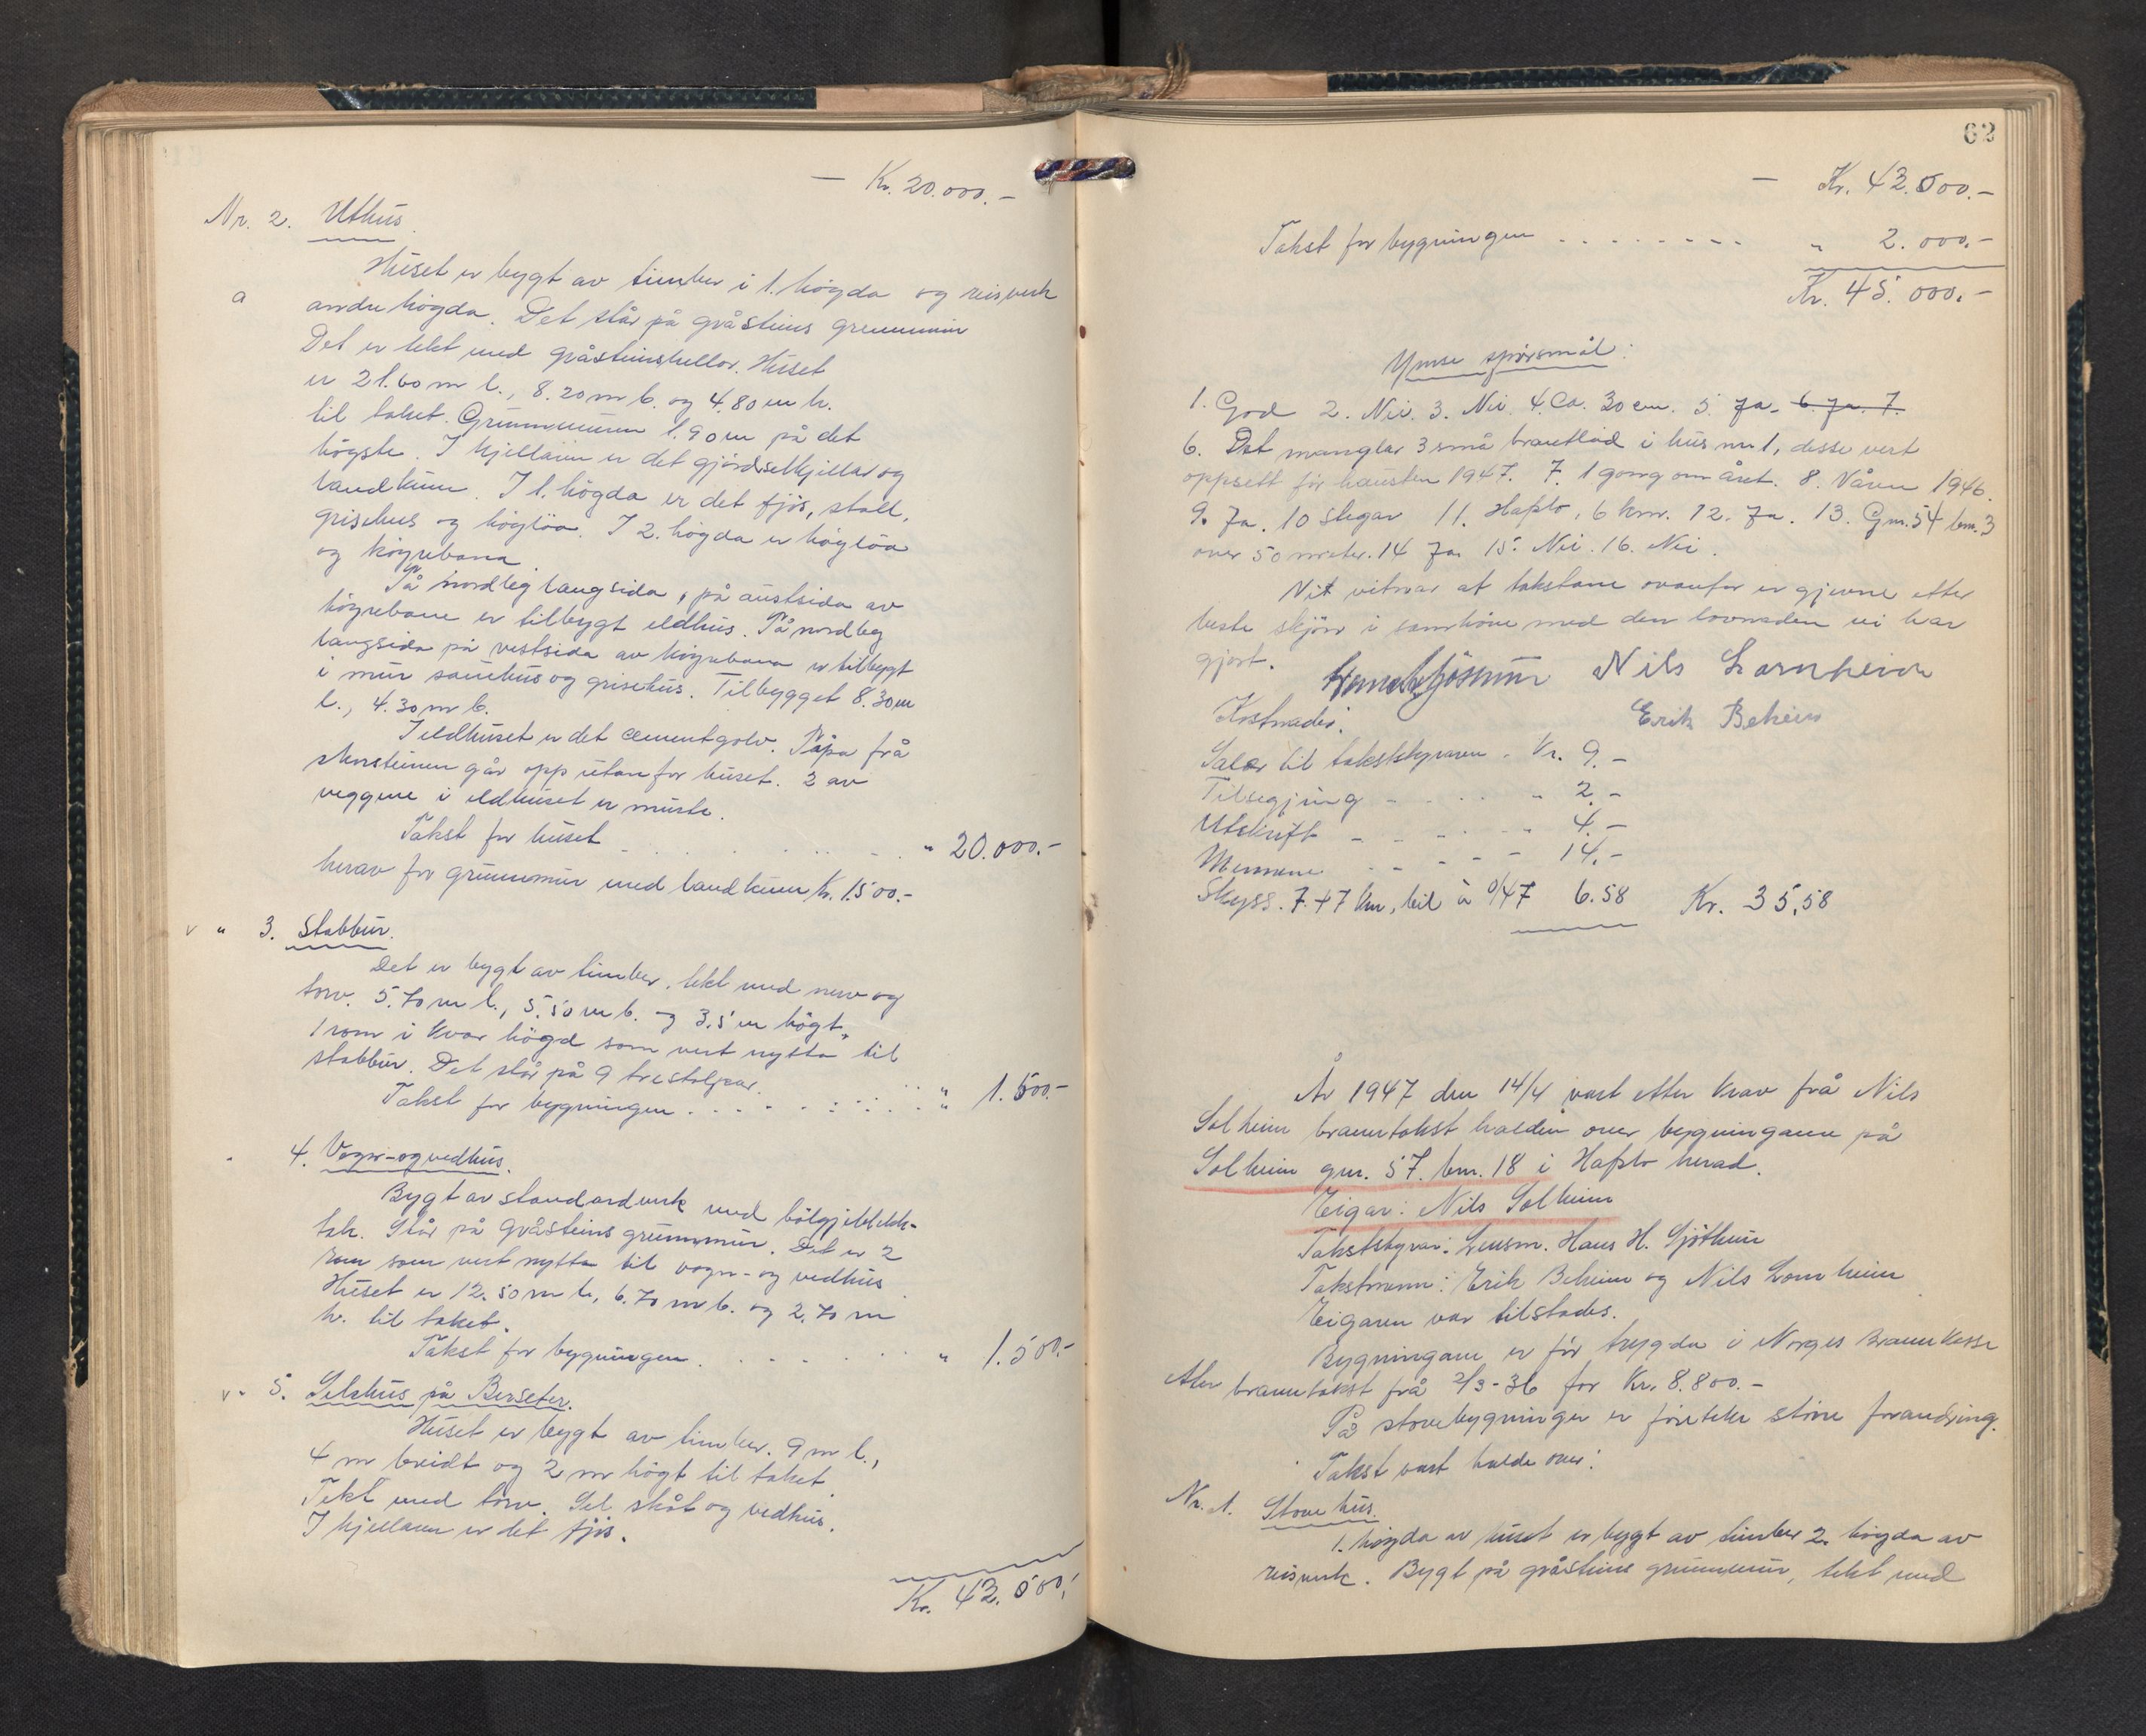 — Kr. 20.000.-
Nr. 2. Uthus.
Huset er bygt av timber i 1. högda og reisverk
a
andre högda. Det står på gråsteins grunnmur
Det er tekt med gråsteinshellor. Huset
er 21.60 m l., 8.20 m b. og 4.80 m h.
til taket. Grunnmuren 1.90 m på det
högste. I kjellaren er det gjödselkjellar og
landkum. I 1. högda er det fjös, stall,
grisehus og höylöa. I 2. högda er höylöa
og köyrebana.
På nordleg langsida, på austsida av
köyrebane er tilbygt eldhus. På nordleg
langsida på vestsida av köyrebana er tilbygt
i mur sauehus og grisehus. Tilbygget 8.30 m
l., 4.30 m b.
I eldhuset er det cementgolv. Pipa frå
skorsteinen går opp utanfor huset. 2 av
veggene i eldhuset er murte.
Takst for huset . . . . . . . „ 20.000.-
herav for grunnmur med landkum Kr. 1.500.-
v „ 3. Stabbur.
Det er bygt av timber, tekt med nevr og
torv. 5.70 m l., 5.50 m b. og 3.5 m högt.
1 rom i kvar högd som vert nytta til
stabbur. Det står på 9 trestolpar.
Takst for bygningen . . . . . . . . „ 1.500.-
4. Vogn- og vedhus.
Bygt av standardverk med bölgjeblikk-
tak. Står på gråsteins grunnmur. Det er 2
rom som vert nytta til vogn- og vedhus
Huset er 12.50 m l., 6.70 m b. og 2.70 m
h. til taket.
Takst for bygningen . . . . . . „ 1.500.-
v „ 5. Selehus på Berseter.
Huset er bygt av timber. 9 m l.,
4 m breidt og 2 m högt til taket.
Tekt med torv. Sel, skåt og vedhus.
I kjellaren er det fjös.
Kr. 43.000.-
62
— Kr. 43.000.-
Takst for bygningen . . . . . . . . „ 2.000.-
Kr. 45.000.-
Ymse spörsmål:
1. God 2. Nei. 3. Nei. 4. Ca. 30 cm. 5. Ja. 6. Ja. 7.
6. Det manglar 3 små brannblad i hus nr. 1, desse vert
oppsett för hausten 1947. 7. 1 gong om året. 8. Våren 1946.
9. Ja. 10 Stegar 11. Hafslo, 6 km. 12. Ja. 13. Gnr. 54 bnr. 3
over 50 meter. 14 Ja. 15. Nei. 16. Nei.
Vit vitnar at takstane ovanfor er gjevne etter
beste skjön i samhöve med den lovnaden vi har
gjort.
Nils Lornheim
Kostnader: Erik Beheim
Salær til takstskyraren . Kr. 9.-
Tilsegjing - . . . „ 2.-
Utskrift - - . . . „ 4.-
Mennene . - - - - 14.-
Skyss. 7+7 km, bil à 0/47 6.58 Kr. 35,58
År 1947 den 14/4 vart etter krav frå Nils
Solheim branntakst halden over bygningane på
Solheim gnr. 57. bnr. 18 i Hafslo herad.
Eigar: Nils Solheim
Takststyrar: Lensm. Hans H. Sjöthun
Takstmenn: Erik Beheim og Nils Lomheim
Eigaren var tilstades.
Bygningane er för trygda i Norges Brannkasse
etter branntakst frå 2/3-36 for Kr. 8.800.-
På stovebygningen erföretekt större forandring.
Takst vart halde over:
Nr. 1. Stovehus.
1. högda av huset er bygt av timber 2. högda av
reisverk. Bygt på gråsteins grunnmur, tekt med